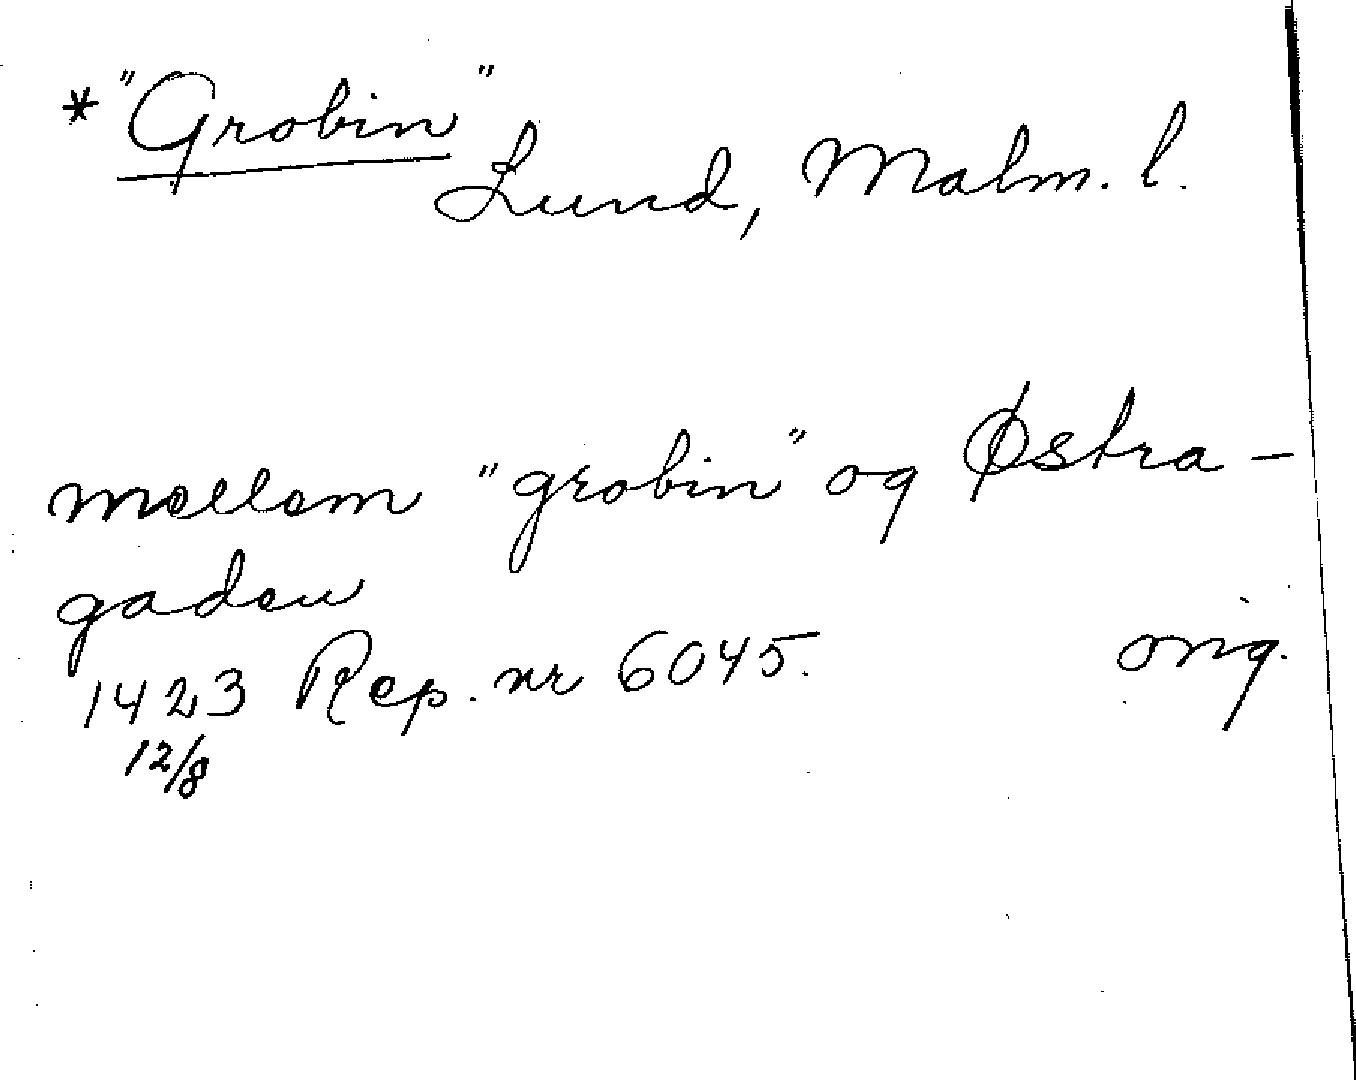 * "Grobin"
Lund, Malm. l.
mellem "grobin" og Østra-
gaden
1423 Rep. nr 6045. orig.
12/8